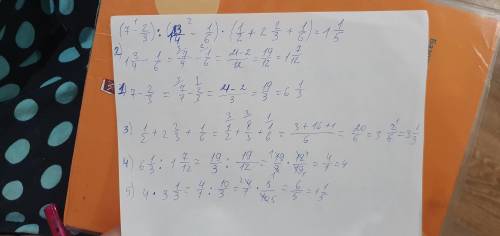 (7 - 2/3) : (1 3/4 - 1/6) · (1/2 + 2 2/3 + 1/6) = 1 1/5
2) 1 3/4 - 1/6 = 7/4 - 1/6 = 21-2/12 = 19/12 = 1 7/12
1) 7 - 2/3 = 7/1 - 2/3 = 21-2/3 = 19/3 = 6 1/3
3) 1/2 + 2 2/3 + 1/6 = 1/2 + 8/3 + 1/6 = 3+16+1/6 = 20/6 = 3 2/6 = 3 1/3
4) 6 1/3 : 1 7/12 = 19/3 : 19/12 = 19/3 · 12/19 = 4/1 = 4
5) 4 : 3 1/3 = 4/1 : 10/3 = 4/1 · 3/10 = 6/5 = 1 1/5